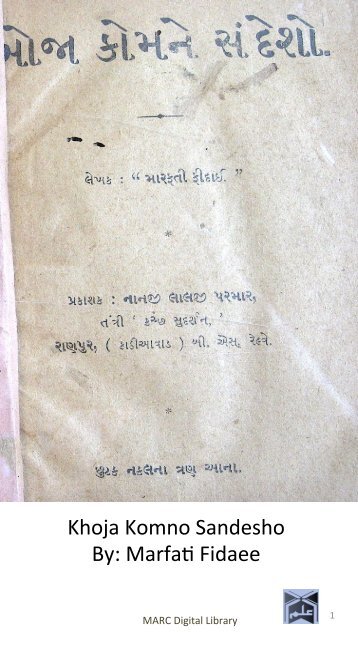 ખોજા કોમને સંદેશો.
લેખક : “ મારફતી ફીદાઈ. ”
*
પ્રકાશક : નાનજી લાલજી પરમાર,
તંત્રી ‘ કચ્છ સુદર્શન, ’
રાણપુર, ( કાઠીઆવાડ ) બી. એસ. રેલ્વે.
*
છુટક નકલના ત્રણ આના.
Khoja Komno Sandesho
By: Marfati Fidaee
MARC Digital Library
علم
1